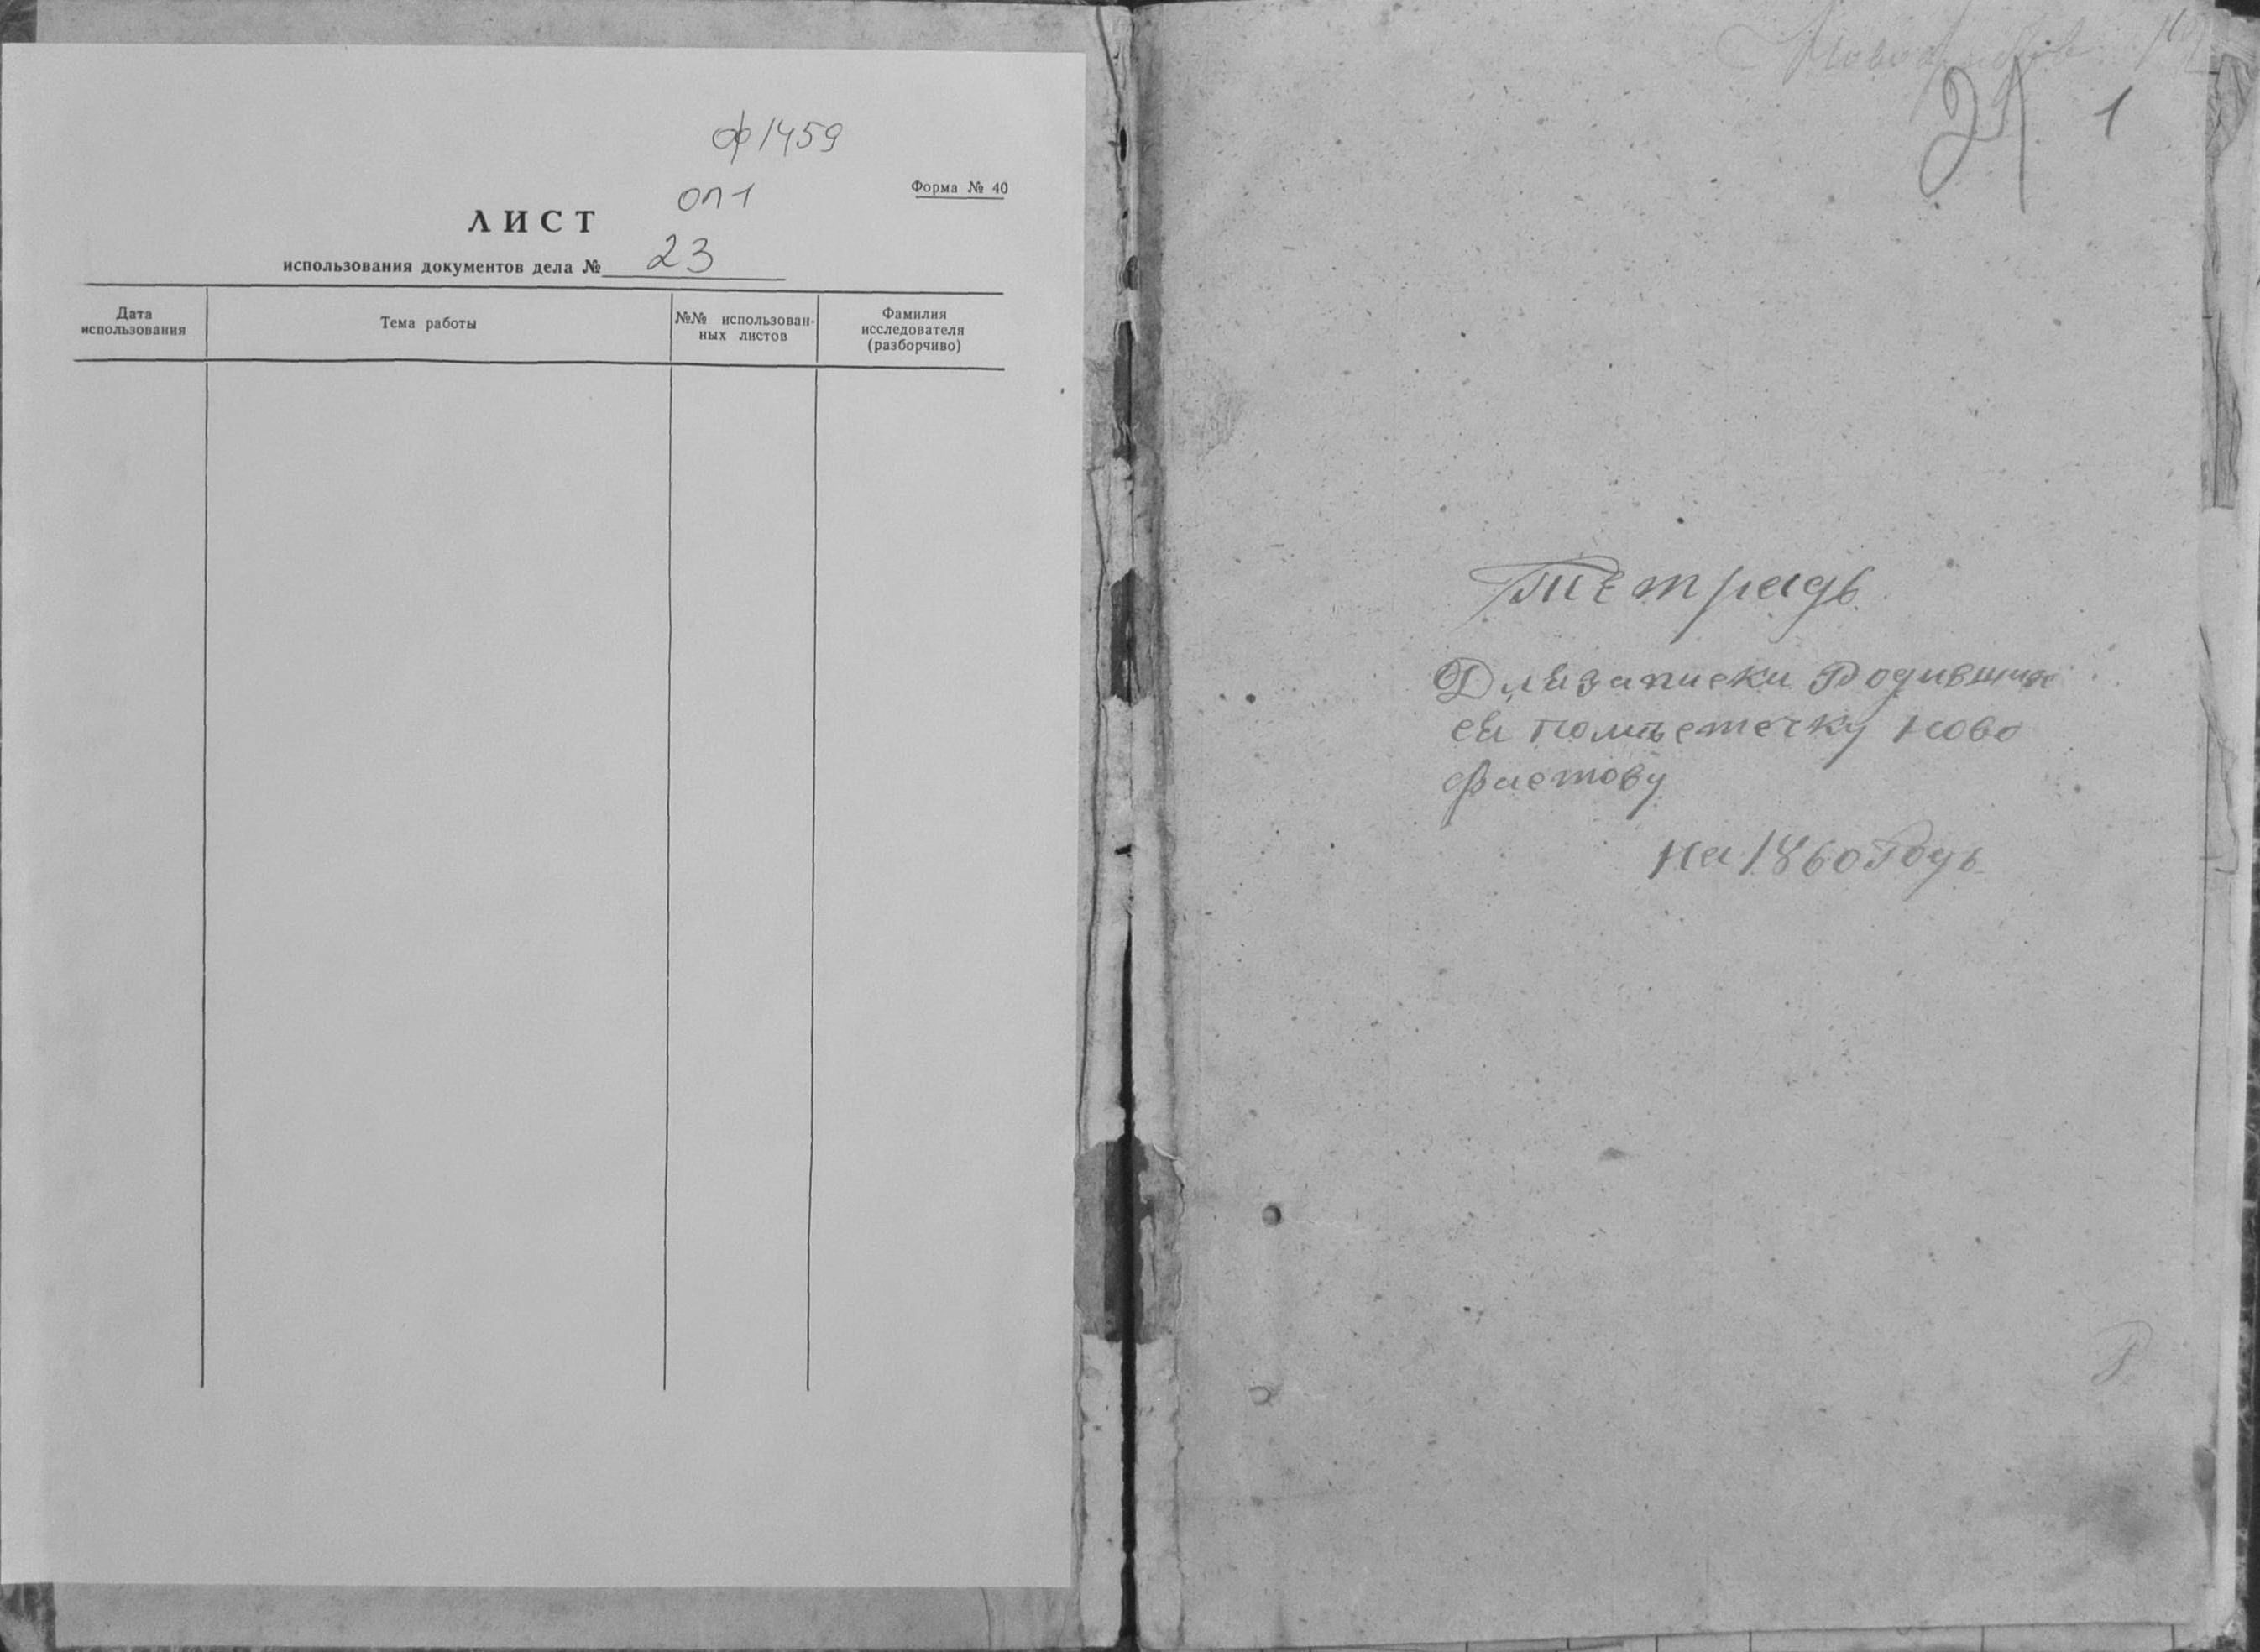 ф 1459
оп 1
Форма № 40
ЛИСТ
использования документов дела № 23
Дата
использования
Тема работы
№№ использован-
ных листов
Фамилия
исследователя
(разборчиво)
1
Тетрадь
Для записки Родивших
ся поместечку ново
фастову
на 1860 Годъ